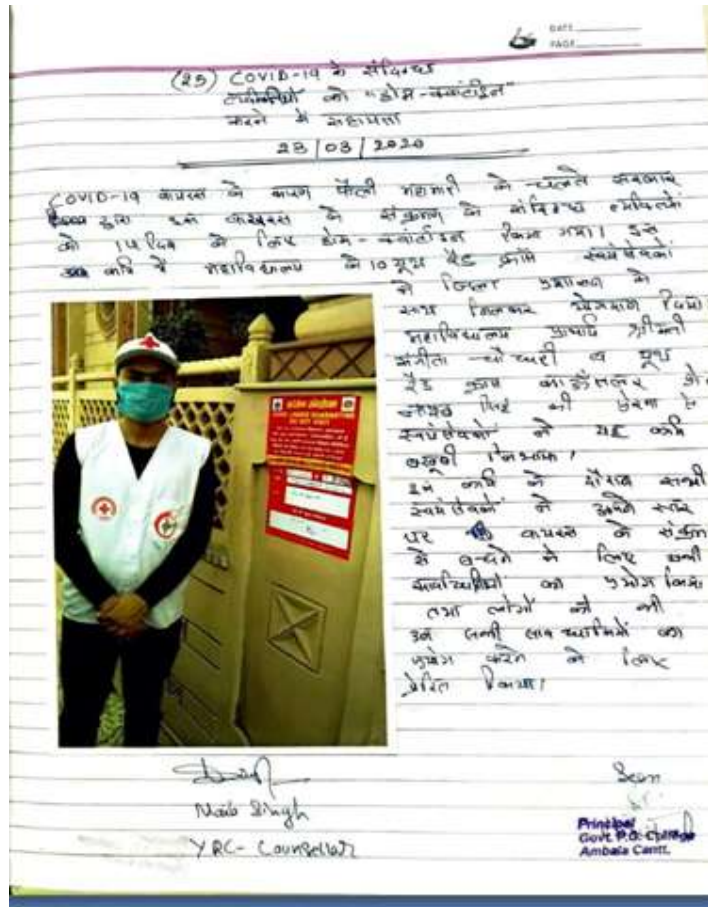 DATE
PAGE
(25) COVID-19 के संदिग्ध
व्यक्तियों को "होम-क्वांटाइन"
करने में सहायता
23/03/2020
COVID-19 वायरस के कारण फैली महामारी के चलते सरकार
द्वारा इस वायरस के संक्रमण के संदिग्ध व्यक्तियों
को 14 दिन के लिए होम-क्वांटाइन किया गया। इस
कार्य में महाविद्यालय के 10 यूथ रैड क्रॉस स्वयंसेवकों
ने जिला प्रशासन के
साथ मिलकर योगदान दिया।
महाविद्यालय प्राचार्या श्रीमती
संगीता चौधरी व यूथ
रैड क्रॉस काउंसलर
सिंह की प्रेरणा से
स्वयंसेवकों ने यह कार्य
बखूबी निभाया।
इस कार्य के दौरान सभी
स्वयंसेवकों ने अपने स्तर
पर वायरस के संक्रमण
से बचने के लिए सभी
सावधानियों का प्रयोग किया
तथा लोगों को भी
उन सभी सावधानियों का
प्रयोग करने के लिए
प्रेरित किया।
Singh
YRC-Counsellor
Principal
Govt. P.G. College
Ambala Cantt.